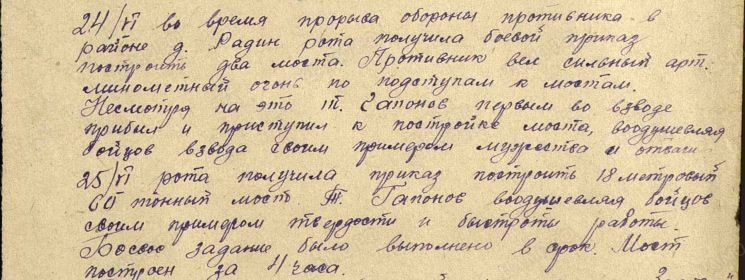 24/VI во время прорыва обороны противника в
районе д. Радин рота получила боевой приказ
построить два моста. Противник вел сильный арт.
минометный огонь по подступам к мостам.
Несмотря на это т. Гапонов первым во взводе
прибыл и приступил к постройке моста, воодушевляя
бойцов взвода своим примером мужества и отваги.
25/VI рота получила приказ построить 18 метровый
60 тонный мост. Т. Гапонов воодушевляя бойцов
своим примером твердости и быстроты работы.
Боевое задание было выполнено в срок. Мост
построен за 4 часа.